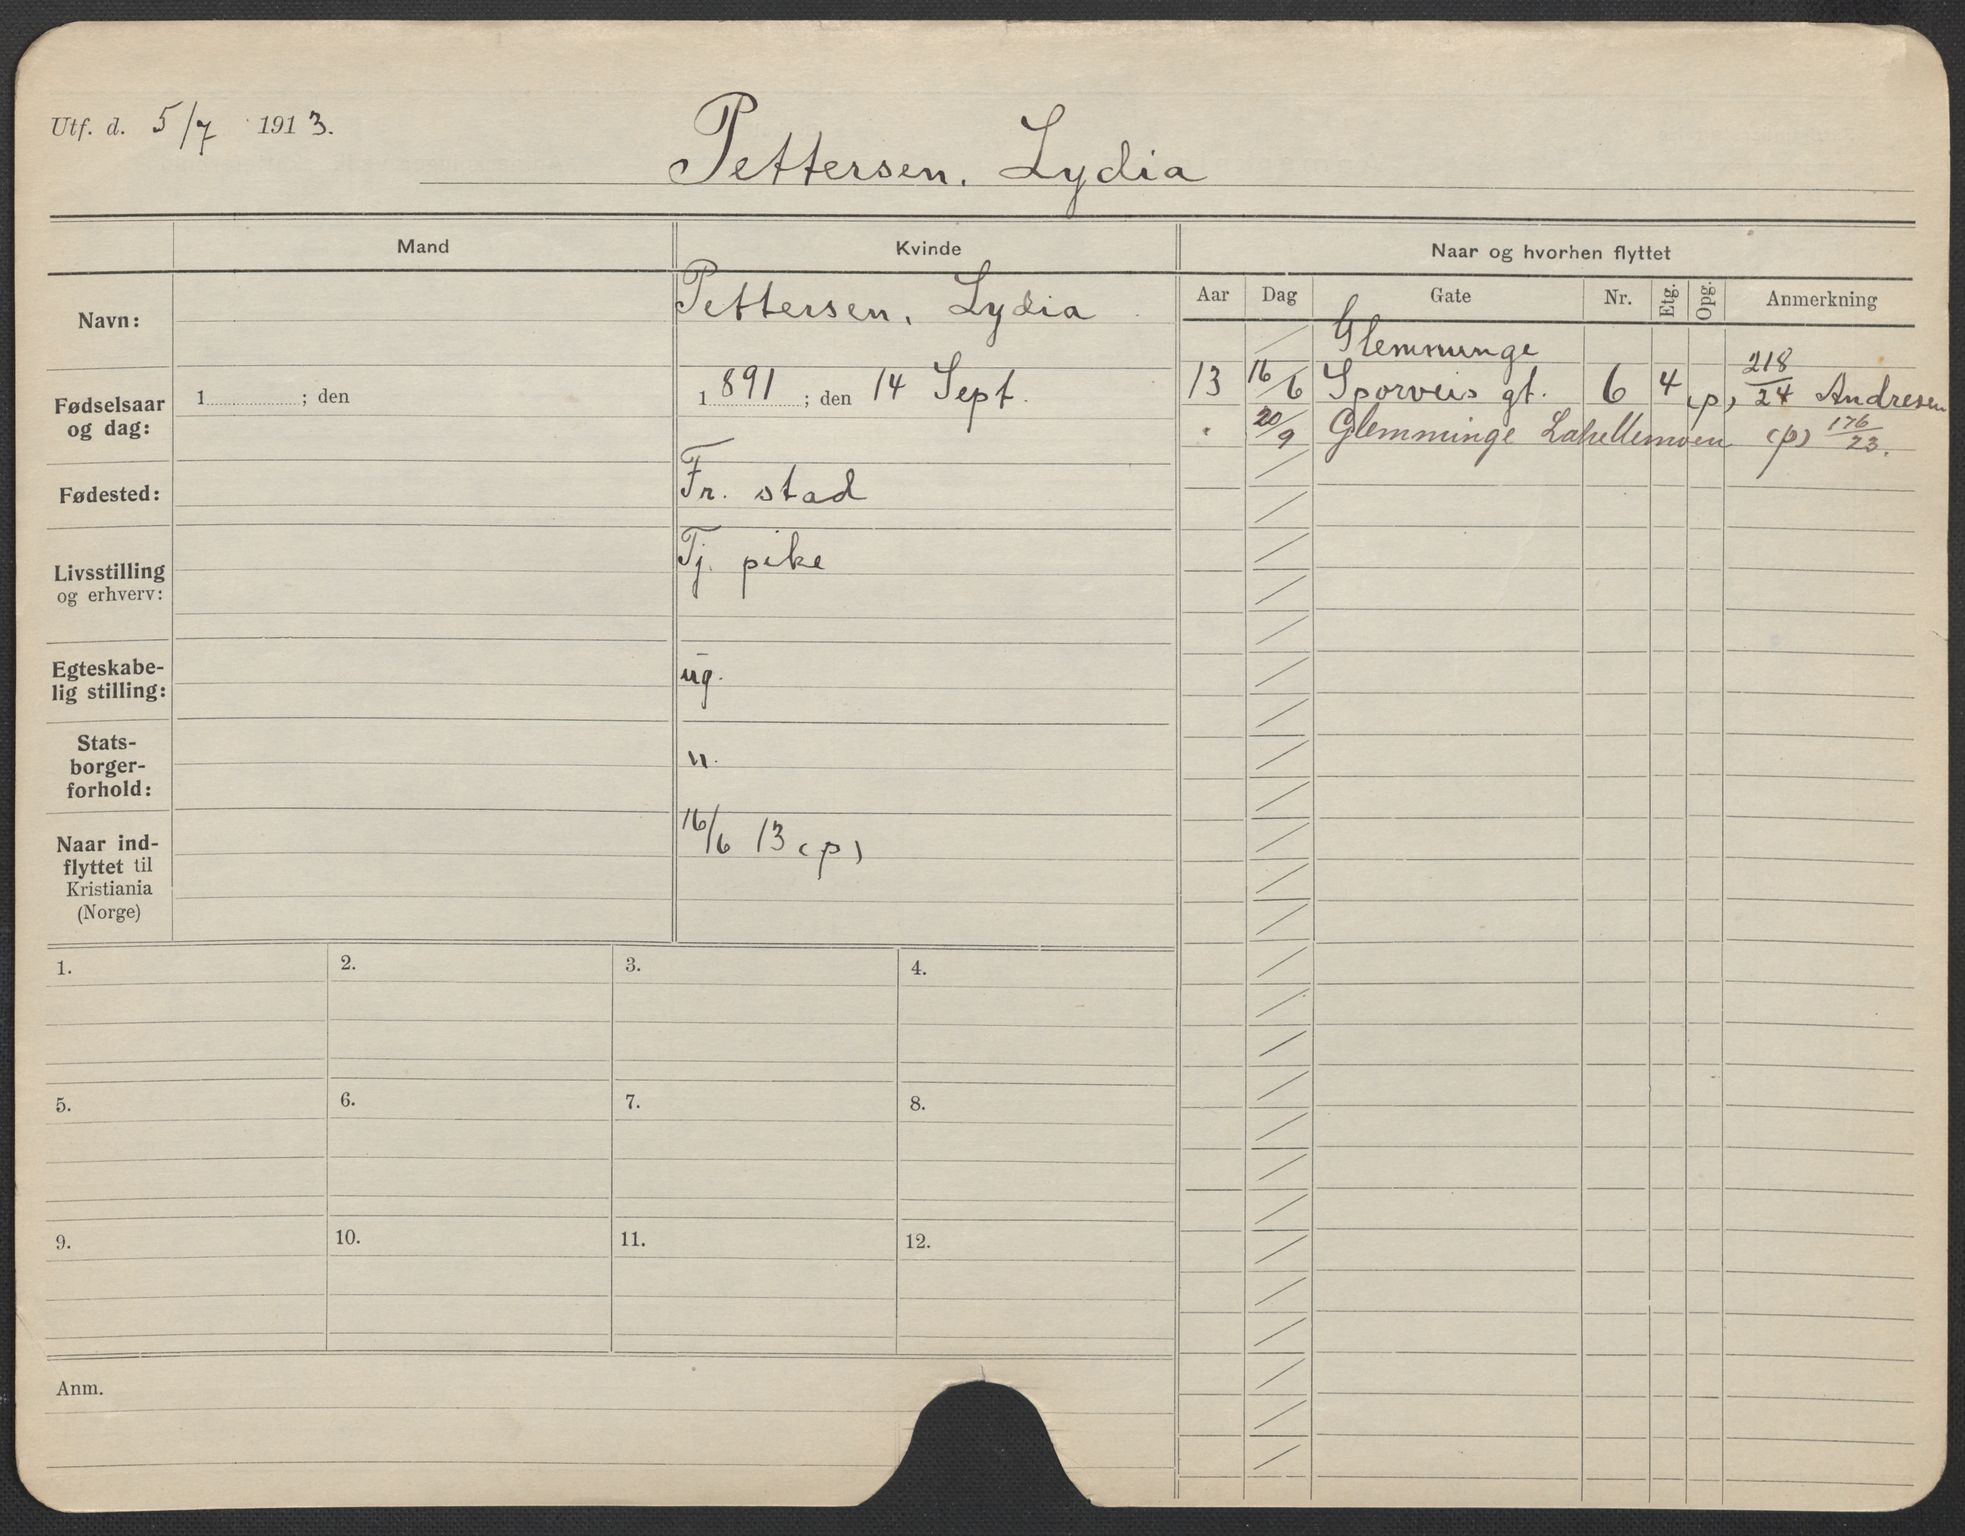 Utf. d. 5/7 1913.
Pettersen, Lydia
Mand
Kvinde
Naar og hvorhen flyttet
Aar Dag Gate Nr. Etg. Opg. Anmerkning
Navn:
Pettersen, Lydia
Glemminge
13 16/6 Sporveis gt. 6 4 (p) 218/24 Andresen
" 20/9 Glemminge (p) 176/23.
Fødselsaar
og dag:
1 ; den
1891 ; den 14 Sept.
Fødested:
Fr. stad
Livsstilling
og erhverv:
Tj. pike
Egteskabe-
lig stilling:
ug.
Stats-
borger-
forhold:
n.
Naar ind-
flyttet til
Kristiania
(Norge)
16/6 13 (p)
1. 2. 3. 4.
5. 6. 7. 8.
9. 10. 11. 12.
Anm.